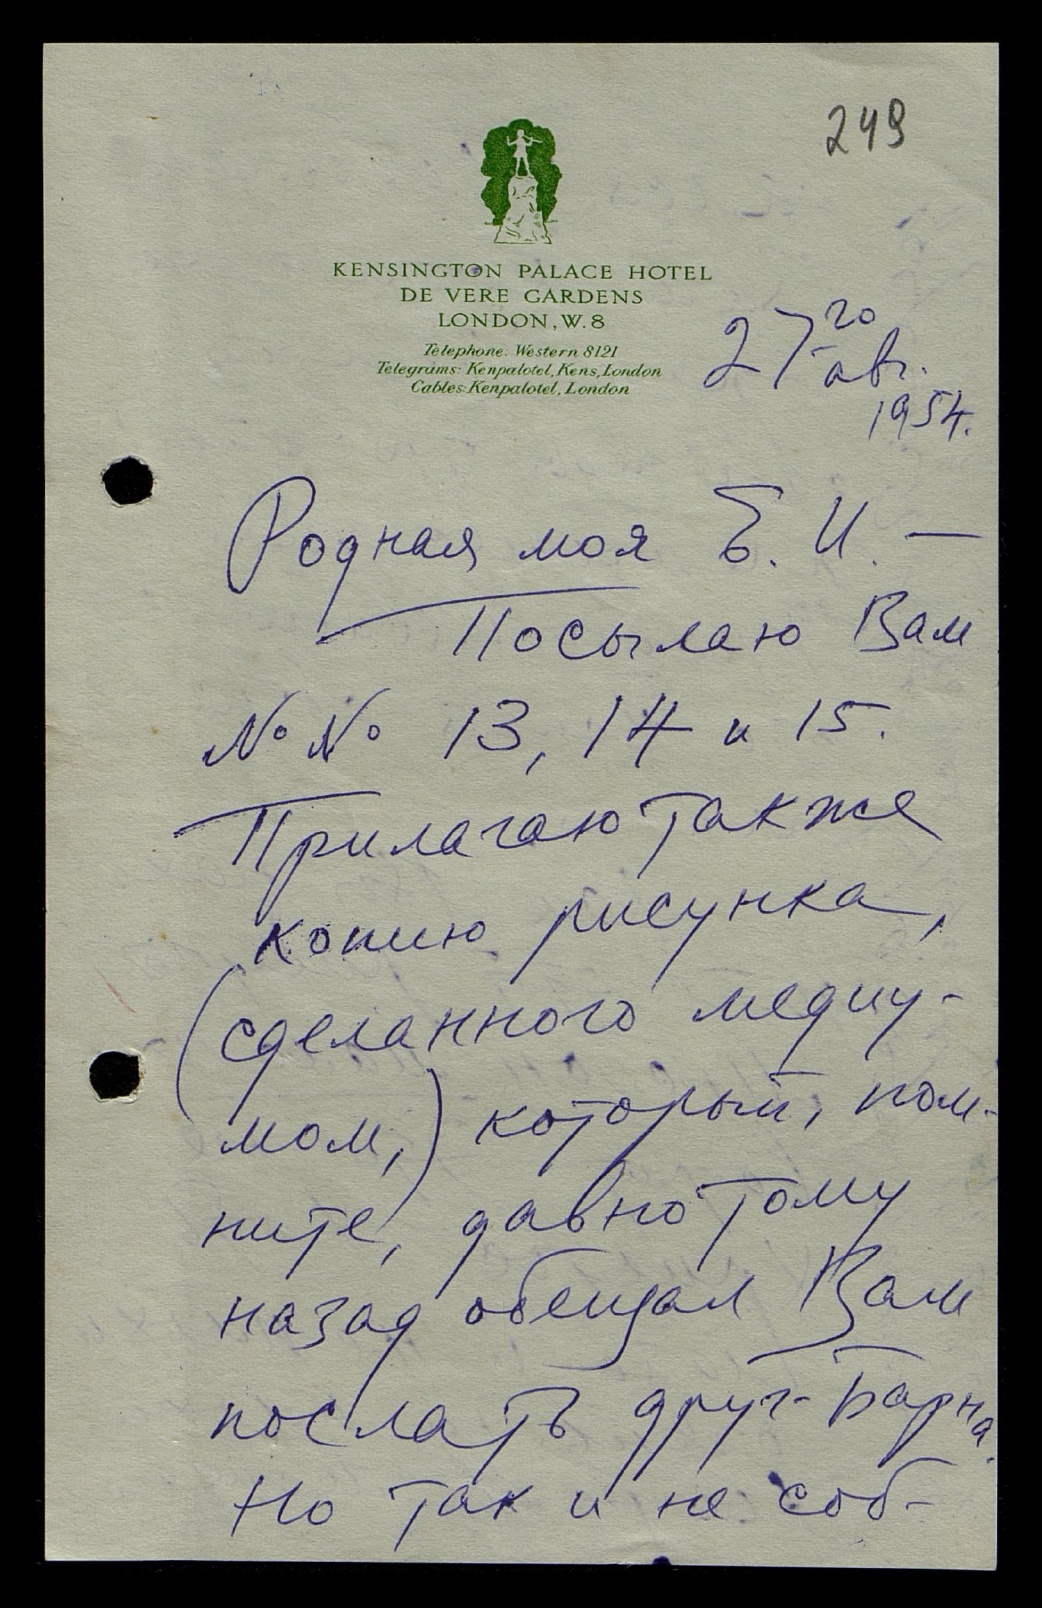 249
KENSINGTON PALACE HOTEL
DE VERE GARDENS
LONDON, W.8
Telephone: Western 8121
Telegrams: Kenpalotel, Kens, London
Cables: Kenpalotel, London
27го авг.
1954.
Родная моя Е. И. —
Посылаю Вам
№ № 13, 14 и 15.
Прилагаю также
копию рисунка,
(сделанного медиу-
мом,) который, пом-
ните, давно тому
назад обещал Вам
послать друг-Барна.
Но так и не соб-